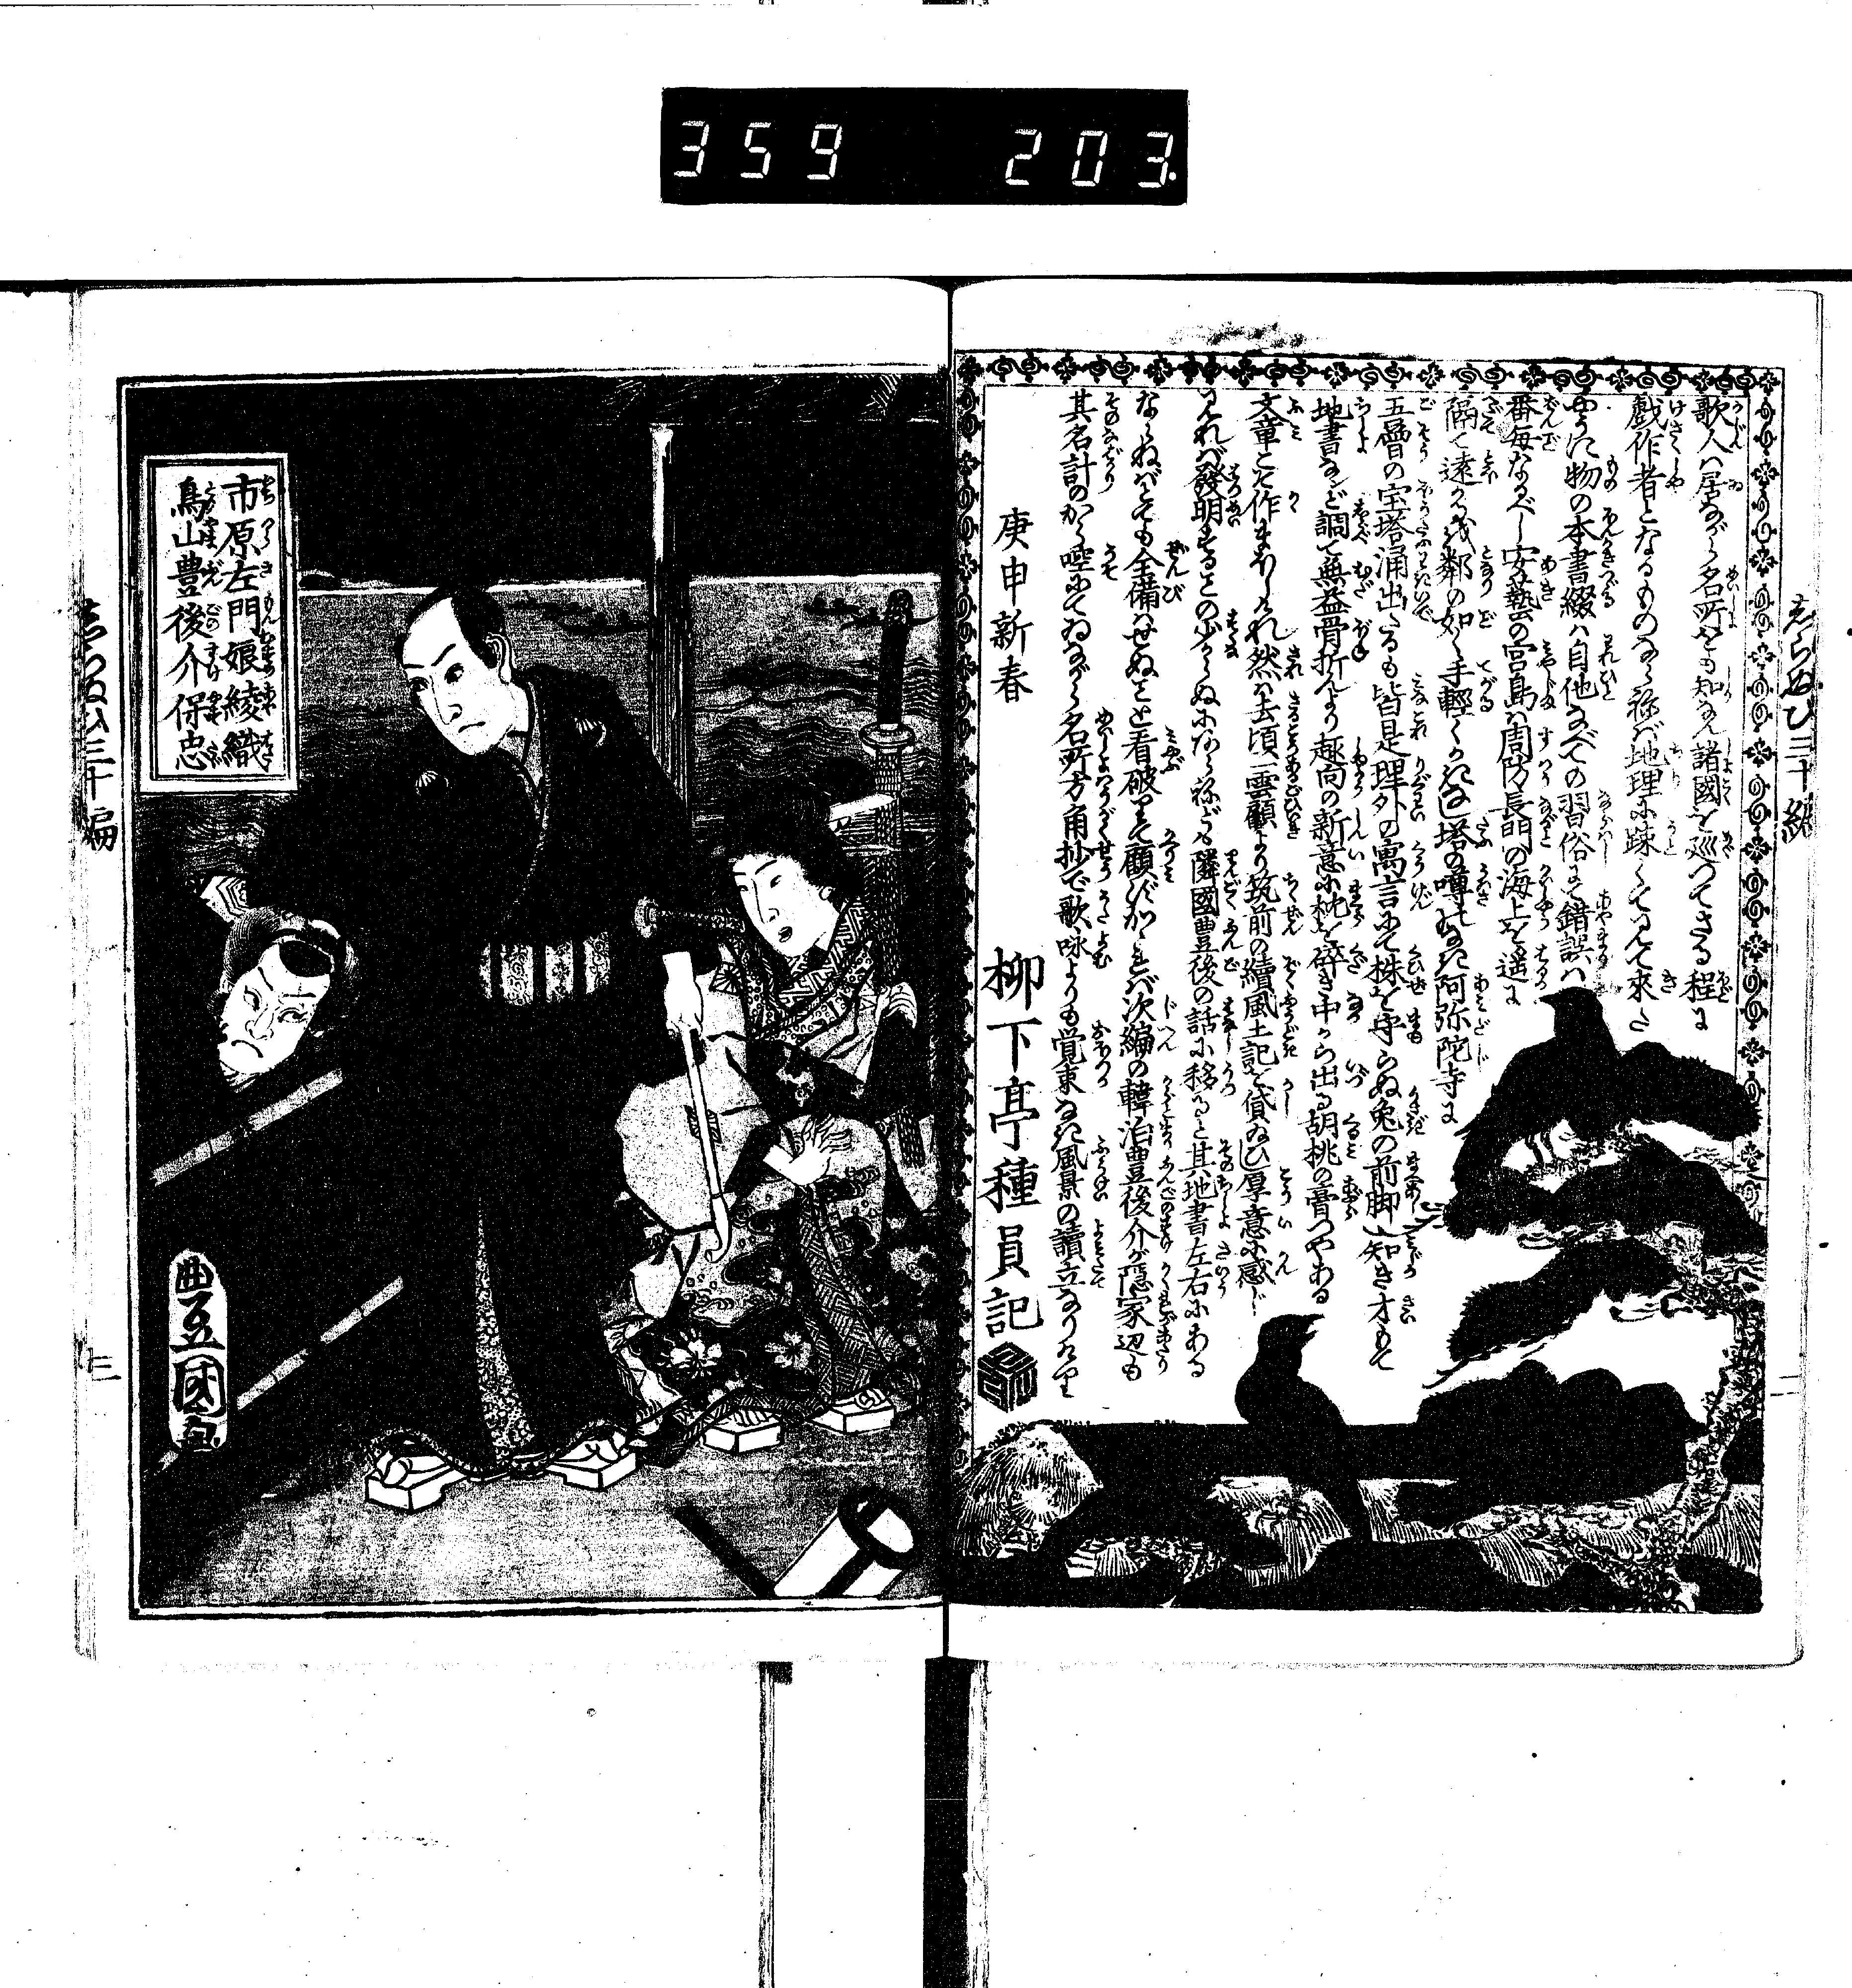 359 203
しらぬひ三十編
歌人は居ながら名所をも知なん諸國を廻つてさる程に
戯作者となるものならねば地理に疎くていんて來た
やうに物の本書綴は自他なべての習俗にて錯誤は
番毎なるべし安藝の宮島は周防長門の海上を遥に
隔て遠かるを鄰の如く手輕くかきなし塔の噂もなき阿弥陀寺に
五層の宝塔涌出たるも皆是理外の寓言にて株を守らぬ兎の前脚知き才もて
地書など調て無益骨折んより趣向の新意に枕を碎き中から出る胡桃の膏つやある
文章こそ作まほしけれ然は去頃一雲顧より筑前の續風土記を貸ゐひ厚意に感じ
これば發明することの少からぬにあらねども隣國豊後の話に移ると其地書左右にある
ならねばとても全備はせぬことと看破りて顧ばかられば次編の韓泊豊後介が隠家辺も
其名計のから啌にてゐながら名所方角抄で歌詠よりも覚束なき風景の讀立なりけり
庚申新春
柳下亭種員記
市原左門娘綾織
鳥山豊後介保忠
豊國画
しらぬひ三十編
三